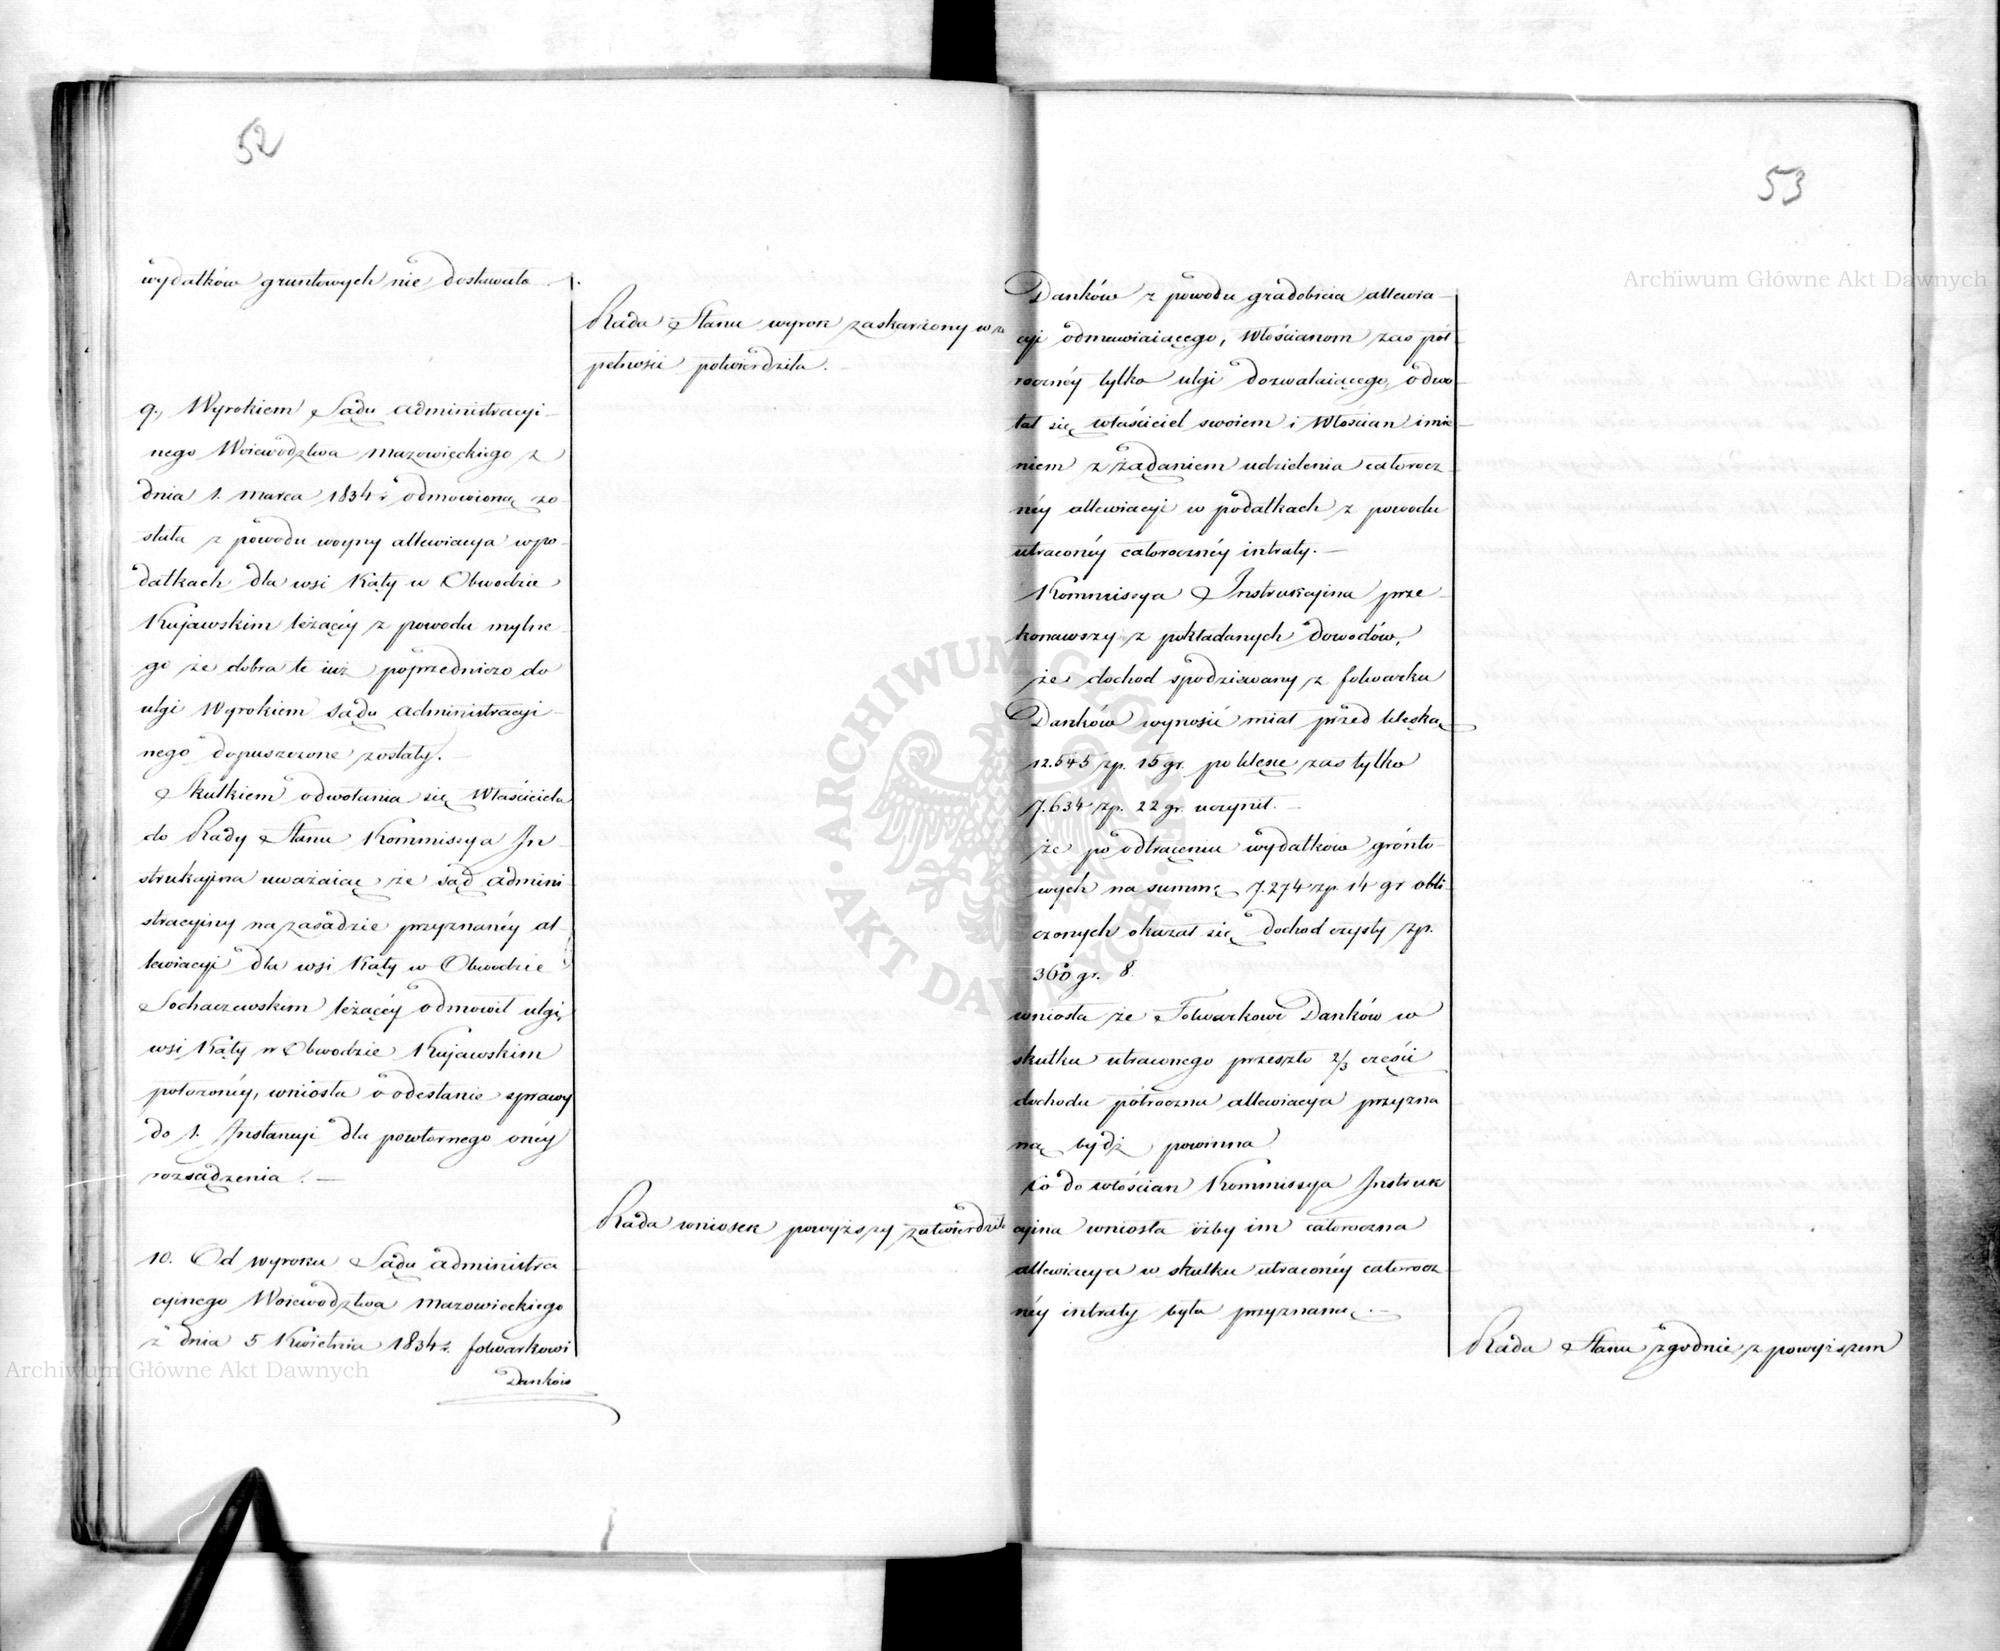 52
wydatków gruntowych nie dostawało.
Rada Stanu wyrok zaskarżony w zu
pełności potwierdziła.
9., Wyrokiem Sądu administracyi-
nego Woiewództwa Mazowieckiego z
dnia 1. Marca 1834 r. odmowioną zo-
stała z powodu woyny allewiacya w po-
datkach dla wsi Kąty w Obwodzie
Kujawskim leżącéy z powodu mylne-
go że dobra te iuż poprzedniczo do
ulgi Wyrokiem Sądu administracyi-
nego dopuszczone zostały. —
Skutkiem odwołania się Właściciela
do Rady Stanu Kommissya In-
strukcyjna uważaiąc że sąd admini-
stracyiny na zasadzie przyznanéy al-
lewiacyi dla wsi Kąty w Obwodzie
Sochaczewskim leżącéy odmowił ulgi,
wsi Kąty w Obwodzie Kujawskim
położonéy, wniosła o odesłanie sprawy
do 1. Instancyi dla powtornego onéy
rozsądzenia. —
Rada wniosek powyższy zatwierdziła
10. Od wyroku Sądu administra
cyinego Woiewództwa Mazowieckiego
z dnia 5 Kwietnia 1834 r. folwarkowi
Danków
53
Danków z powodu gradobicia allewia-
cyi odmawiaiącego, Włościanom zaś pół-
rocznéy tylko ulgi dozwalaiącego, odwo-
łał się właściciel swoiem i Włościan imie-
niem z żądaniem udzielenia całorocz-
néy allewiacyi w podatkach z powodu
utraconéy całorocznéy intraty. —
Kommissya Instrukcyjna prze-
konawszy z pokładanych dowodów,
że dochod spodziewany z folwarku
Danków wynosić miał przed klęską
12.645 zp. 15 gr. po klęsce zaś tylko
7.634 zp. 22 gr. uczynił. —
że po odtrąceniu wydatków grónto-
wych na summę 7.274 zp. 14 gr obli-
czonych okazał się dochod czysty zp.
360 gr. 8
wniosła że Folwarkowi Danków w
skutku utraconego przeszło 2/3 części
dochodu półroczna allewiacya przyzna
ną bydź powinna
Co do włościan Kommissya Instruk
cyina wniosła iżby im całoroczna
allewiacya w skutku utraconéy całorocz-
néy intraty była przyznaną. —
Rada Stanu zgodnie z powyższem
Archiwum Główne Akt Dawnych
Archiwum Główne Akt Dawnych
ARCHIWUM GŁÓWNE AKT DAWNYCH